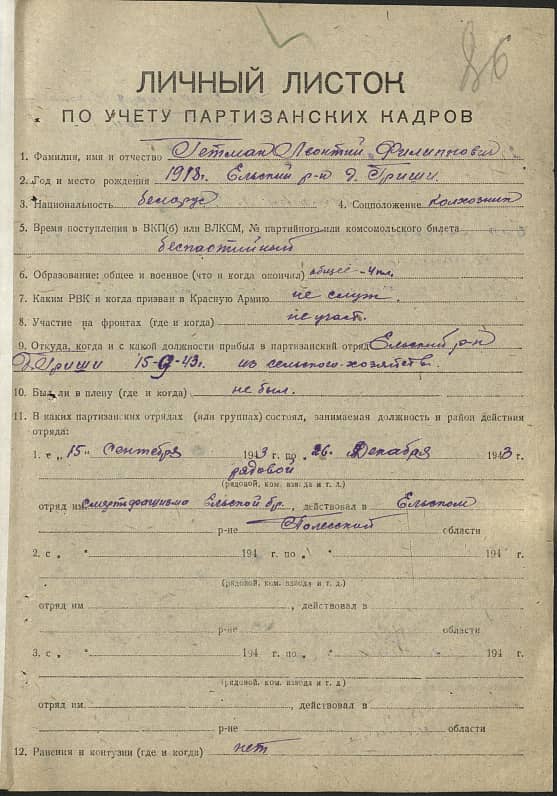 86
ЛИЧНЫЙ ЛИСТОК
ПО УЧЕТУ ПАРТИЗАНСКИХ КАДРОВ
1. Фамилия, имя и отчество Гетман Леонтий Филиппович
2. Год и место рождения 1918г. Ельский р-н д. Гриши.
3. Национальность беларус 4. Соцположение колхозник
5. Время поступления в ВКП(б) или ВЛКСМ, № партийного или комсомольского билета
беспартийный
6. Образование: общее и военное (что и когда окончил) общее - 4 кл.
7. Каким РВК и когда призван в Красную Армию не служ.
8. Участие на фронтах (где и когда) не участ.
9. Откуда, когда и с какой должности прибыл в партизанский отряд Ельский р-н
д. Гриши 15-9-43г. из сельского-хозяйств.
10. Был ли в плену (где и когда) не был.
11. В каких партизанских отрядах (или группах) состоял, занимаемая должность и район действия
отряда:
1. с „15" Сентября 1943 г. по „26" Декабря 1943 г.
рядовой
(рядовой, ком. взвода и т. д.)
отряд им Смерть фашизма Ельской бр., действовал в Ельском
р-не Полесской области
2. с „ " 194 г. по „ " 194 г.
(рядовой, ком. взвода и т. д.)
отряд им , действовал в
р-не области
3. с „ " 194 г. по „ " 194 г.
(рядовой, ком. взвода и т. д.)
отряд им. , действовал в
р-не области
12. Ранения и контузии (где и когда) нет